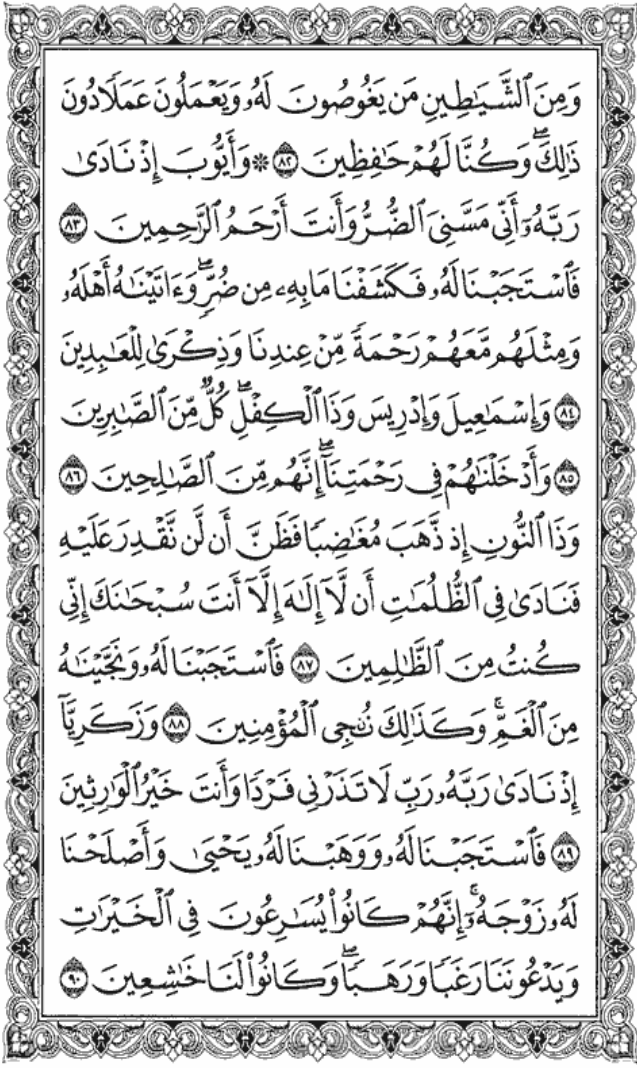 وَمِنَ ٱلشَّيَٰطِينِ مَن يَغُوصُونَ لَهُۥ وَيَعْمَلُونَ عَمَلًا دُونَ
ذَٰلِكَۖ وَكُنَّا لَهُمْ حَٰفِظِينَ ٨٢ ۞ وَأَيُّوبَ إِذْ نَادَىٰ
رَبَّهُۥٓ أَنِّي مَسَّنِيَ ٱلضُّرُّ وَأَنتَ أَرْحَمُ ٱلرَّٰحِمِينَ ٨٣
فَٱسْتَجَبْنَا لَهُۥ فَكَشَفْنَا مَا بِهِۦ مِن ضُرّٖۖ وَءَاتَيْنَٰهُ أَهْلَهُۥ
وَمِثْلَهُم مَّعَهُمْ رَحْمَةٗ مِّنْ عِندِنَا وَذِكْرَىٰ لِلْعَٰبِدِينَ
٨٤ وَإِسْمَٰعِيلَ وَإِدْرِيسَ وَذَا ٱلْكِفْلِۖ كُلّٞ مِّنَ ٱلصَّٰبِرِينَ
٨٥ وَأَدْخَلْنَٰهُمْ فِي رَحْمَتِنَآۖ إِنَّهُم مِّنَ ٱلصَّٰلِحِينَ ٨٦
وَذَا ٱلنُّونِ إِذ ذَّهَبَ مُغَٰضِبٗا فَظَنَّ أَن لَّن نَّقْدِرَ عَلَيْهِ
فَنَادَىٰ فِي ٱلظُّلُمَٰتِ أَن لَّآ إِلَٰهَ إِلَّآ أَنتَ سُبْحَٰنَكَ إِنِّي
كُنتُ مِنَ ٱلظَّٰلِمِينَ ٨٧ فَٱسْتَجَبْنَا لَهُۥ وَنَجَّيْنَٰهُ
مِنَ ٱلْغَمِّۚ وَكَذَٰلِكَ نُۨجِي ٱلْمُؤْمِنِينَ ٨٨ وَزَكَرِيَّآ
إِذْ نَادَىٰ رَبَّهُۥ رَبِّ لَا تَذَرْنِي فَرْدٗا وَأَنتَ خَيْرُ ٱلْوَٰرِثِينَ
٨٩ فَٱسْتَجَبْنَا لَهُۥ وَوَهَبْنَا لَهُۥ يَحْيَىٰ وَأَصْلَحْنَا
لَهُۥ زَوْجَهُۥٓۚ إِنَّهُمْ كَانُوا۟ يُسَٰرِعُونَ فِي ٱلْخَيْرَٰتِ
وَيَدْعُونَنَا رَغَبٗا وَرَهَبٗاۖ وَكَانُوا۟ لَنَا خَٰشِعِينَ ٩٠